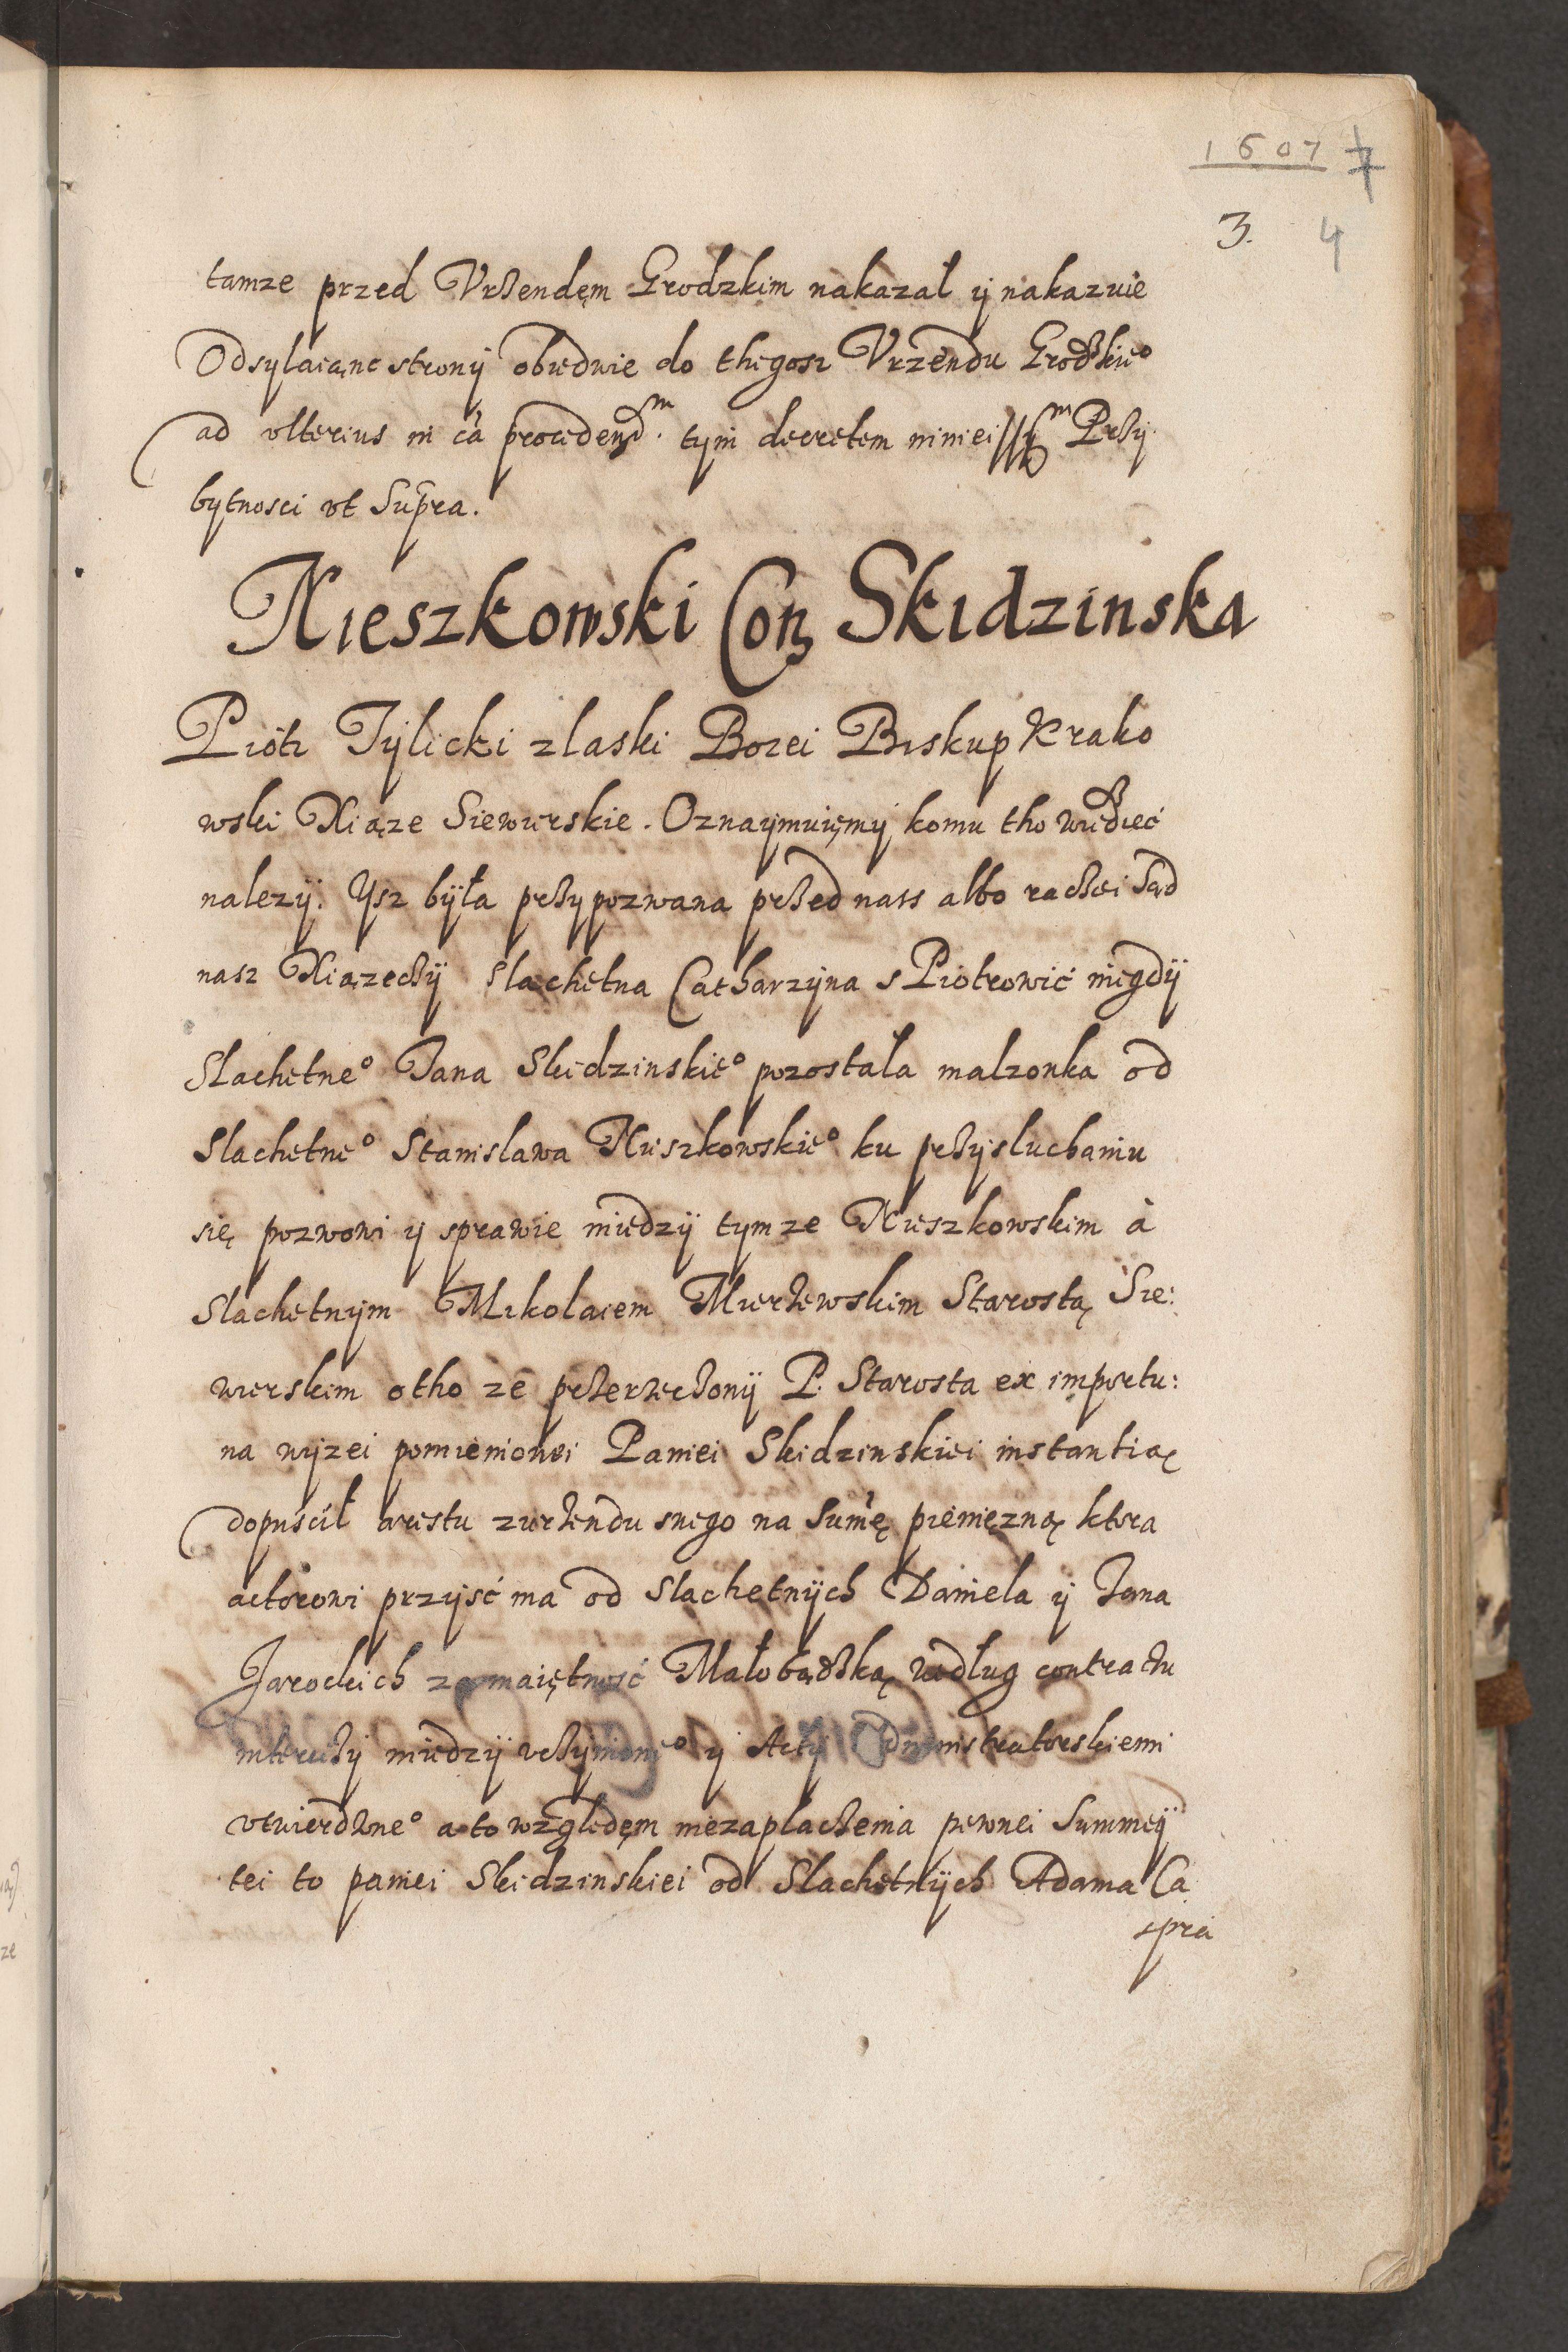 1607 7
3. 4
tamze przed Vrżendęm Grodzkim nakazał ÿ nakazuie
Odsylaiącc stronÿ obiedwie do thegosz Vrzendu Grodzkie°
ad vlterius in cá procedend.m tÿm decretem ninieiss.m Przÿ
bÿtnosci vt Supra.
Nieszkowski Con Skidzinska
Piotr Tÿlicki z laski Bozei Biskup Krako
wski Xiąze Siewierskie. Oznaÿmuięmÿ komu tho wiedzieć
nalezÿ. Ysz bÿła przÿpozwana przed nass albo raczei Sąd
nasz Xiązeczÿ slachetna Catharzÿna s Piotrowic niegdÿ
Slachetne° Jana Skidzinskie° pozostała malzonka od
Slachetne° Stanislawa Nieszkowskie° ku przÿsluchaniu
się pozwowi ÿ sprawie miedzÿ tÿmze Nieszkowskim à
Slachetnÿm Mikolaiem Mierzewskim Starostą Sie:
wierskim otho ze przerzeczonÿ P. Starosta ex importu:
na wÿzei pomienionei Paniei Skidzinskiei instantią
dopuścił arestu z urzendu swego na Sumę pieniężną ktora
actorowi przÿść ma od Slachetnÿch Daniela ÿ Jana
Jarockich za maiętność Małobądzką według contractu
interczÿ miedzÿ vczÿnione° ÿ Actÿ Administratorskiemi
vtwierdzone° a to względęm niezaplaczenia pewnei Summeÿ
tei to paniei Skidzinskiei od Slachetnÿch Adama Ca
spra